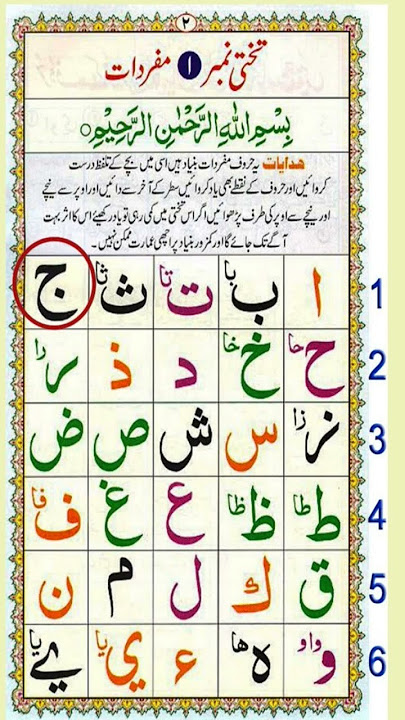 ٢
تختی نمبر ١ مفردات
بِسْمِ اللهِ الرَّحْمٰنِ الرَّحِيْمِ
ھدایات یہ حروف مفردات بنیاد ہیں اسی میں بچے کے تلفظ درست
کروائیں اور حروف کے نقطے بھی یاد کروائیں سطر کے آخر سے دائیں اور اوپر سے نیچے
اور نیچے سے اوپر کی طرف پڑھوائیں اگر اس تختی میں کمی رہی تو یاد رکھیئے اس کا اثر بہت
آگے تک جائے گا اور کمزور بنیاد پر اچھی عمارت ممکن نہیں۔
ا ب با ت تا ث ثا ج 1
ح حا خ خا د ذ ر را 2
ز زا س ش ص ض 3
ط طا ظ ظا ع غ ف فا 4
ق ك ل م ن 5
و واو ه ھا ء ي يا ے يا 6